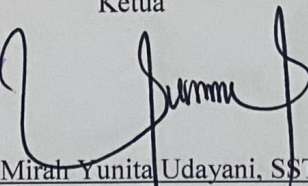 Ketua
Mirah Yunita Udayani, SST